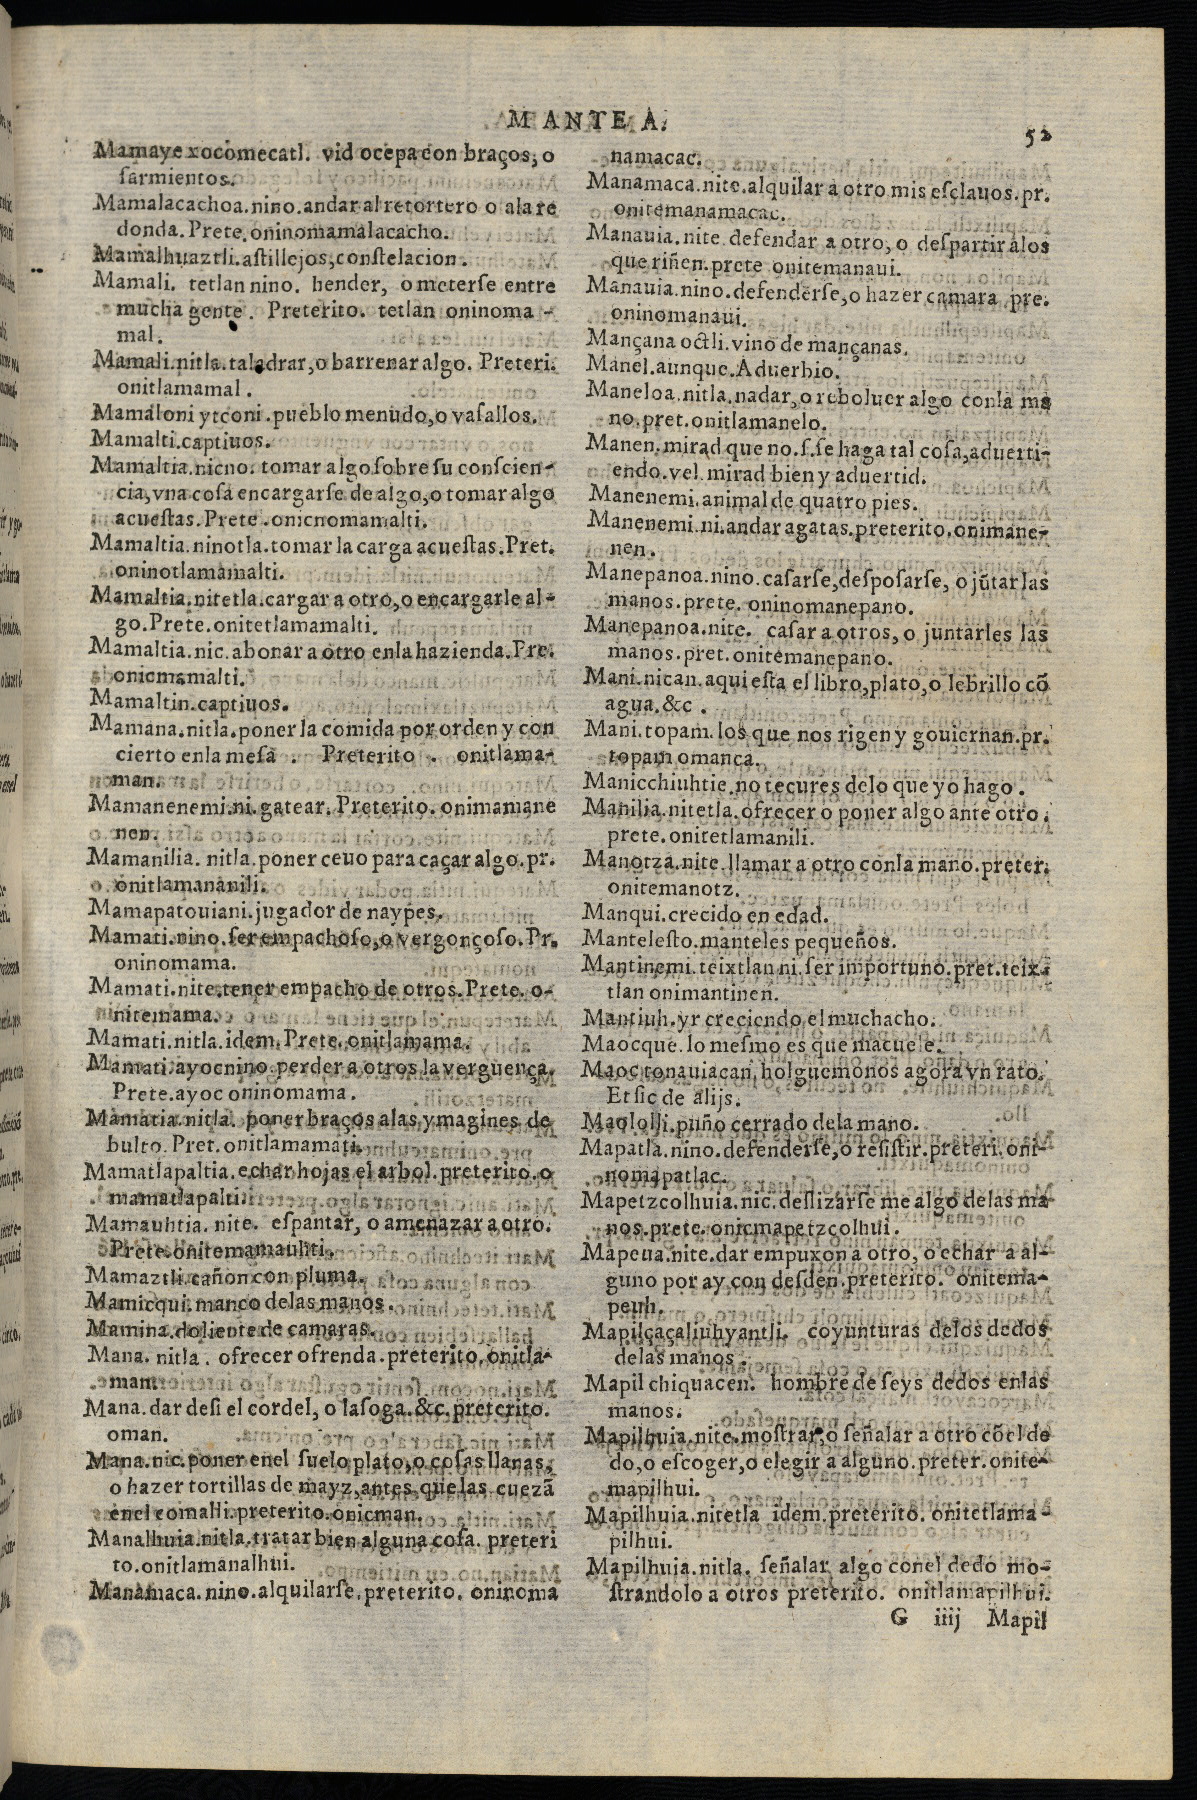 M ANTE A.
52
Mamaye xocomecatl. vid o cepa con braços, o
sarmientos.
Mamalacachoa. nino. andar al retortero o ala re
donda. Prete. oninomamalacacho.
Mamalhuaztli. astillejos, constelacion.
Mamali. tetlan nino. hender, o meterse entre
mucha gente. Preterito. tetlan oninoma -
mal.
Mamali. nitla. taladrar, o barrenar algo. Preteri.
onitlamamal.
Mamaloni ytconi. pueblo menudo, o vasallos.
Mamalti. captiuos.
Mamaltia. nicno. tomar algo sobre su conscien-
cia, vna cosa encargarse de algo, o tomar algo
acuestas. Prete. onicnomamalti.
Mamaltia. ninotla. tomar la carga acuestas. Pret.
oninotlamamalti.
Mamaltia. nitetla. cargar a otro, o encargarle al-
go. Prete. onitetlamamalti.
Mamaltia. nic. abonar a otro enla hazienda. Pre.
onicmamalti.
Mamaltin. captiuos.
Mamana. nitla. poner la comida por orden y con
cierto enla mesa. Preterito. onitlama-
man.
Mamanenemi. ni. gatear. Preterito. onimamane
nen.
Mamanilia. nitla. poner ceuo para caçar algo. pr.
onitlamananili.
Mamapatouiani. jugador de naypes.
Mamati. nino. ser empachoso, o vergonçoso. Pr.
oninomama.
Mamati. nite. tener empacho de otros. Prete. o-
nitemama.
Mamati. nitla. idem. Prete. onitlamama.
Mamati. ayocnino. perder a otros la verguença.
Prete. ayoc oninomama.
Mamatia. nitla. poner braços alas ymagines de
bulto. Pret. onitlamamati.
Mamatlapaltia. echar hojas el arbol. preterito. o
mamatlapalti.
Mamauhtia. nite. espantar, o amenazar a otro.
Prete. onitemamauhti.
Mamaztli. cañon con pluma.
Mamicqui. manco delas manos.
Mamina. doliente de camaras.
Mana. nitla. ofrecer ofrenda. preterito. onitla-
man.
Mana. dar desi el cordel, o la soga. &c. preterito.
oman.
Mana. nic. poner enel suelo plato, o cosas llanas,
o hazer tortillas de mayz, antes que las cuezã
enel comalli. preterito. onicman.
Manalhuia. nitla. tratar bien alguna cosa. preteri
to. onitlamanalhui.
Manamaca. nino. alquilarse. preterito. oninoma
namacac.
Manamaca. nite. alquilar a otro mis esclauos. pr.
onitemanamacac.
Manauia. nite. defendar a otro, o despartir alos
que riñen. prete onitemanaui.
Manauia. nino. defenderse, o hazer camara pre.
oninomanaui.
Mançana octli. vino de mançanas.
Manel. aunque. Aduerbio.
Maneloa. nitla. nadar, o reboluer algo conla ma
no. pret. onitlamanelo.
Manen. mirad que no. s. se haga tal cosa, aduerti-
endo. vel. mirad bien y aduertid.
Manenemi. animal de quatro pies.
Manenemi. ni. andar agatas. preterito. onimane-
nen.
Manepanoa. nino. casarse, desposarse, o jũtar las
manos. prete. oninomanepano.
Manepanoa. nite. casar a otros, o juntarles las
manos. pret. onitemanepano.
Mani. nican. aqui esta el libro, plato, o lebrillo cõ
agua. &c.
Mani. topam. los que nos rigen y gouiernan. pr.
topam omanca.
Manicchiuhtie. no te cures delo que yo hago.
Manilia. nitetla. ofrecer o poner algo ante otro.
prete. onitetlamanili.
Manotza. nite. llamar a otro conla mano. preter.
onitemanotz.
Manqui. crecido en edad.
Mantelesto. manteles pequeños.
Mantinemi. teixtlan ni. ser importuno. pret. teix-
tlan onimantinen.
Mantiuh. yr creciendo el muchacho.
Maocque. lo mesmo es que macuele.
Maoc tonauiacan. holguemonos agora vn rato.
Et sic de alijs.
Maololli. puño cerrado dela mano.
Mapatla. nino. defenderse, o resistir. preteri. oni-
nomapatlac.
Mapetzcolhuia. nic. deslizarse me algo delas ma
nos. prete. onicmapetzcolhui.
Mapeua. nite. dar empuxon a otro, o echar a al-
guno por ay con desden. preterito. onitema-
peuh.
Mapilçaçaliuhyantli. coyunturas delos dedos
delas manos.
Mapil chiquacen. hombre de seys dedos enlas
manos.
Mapilhuia. nite. mostrar, o señalar a otro cõel de
do, o escoger, o elegir a alguno. preter. onite-
mapilhui.
Mapilhuia. nitetla idem. preterito. onitetlama-
pilhui.
Mapilhuia. nitla. señalar algo conel dedo mo-
strandolo a otros preterito. onitlamapilhui.
G iiij Mapil